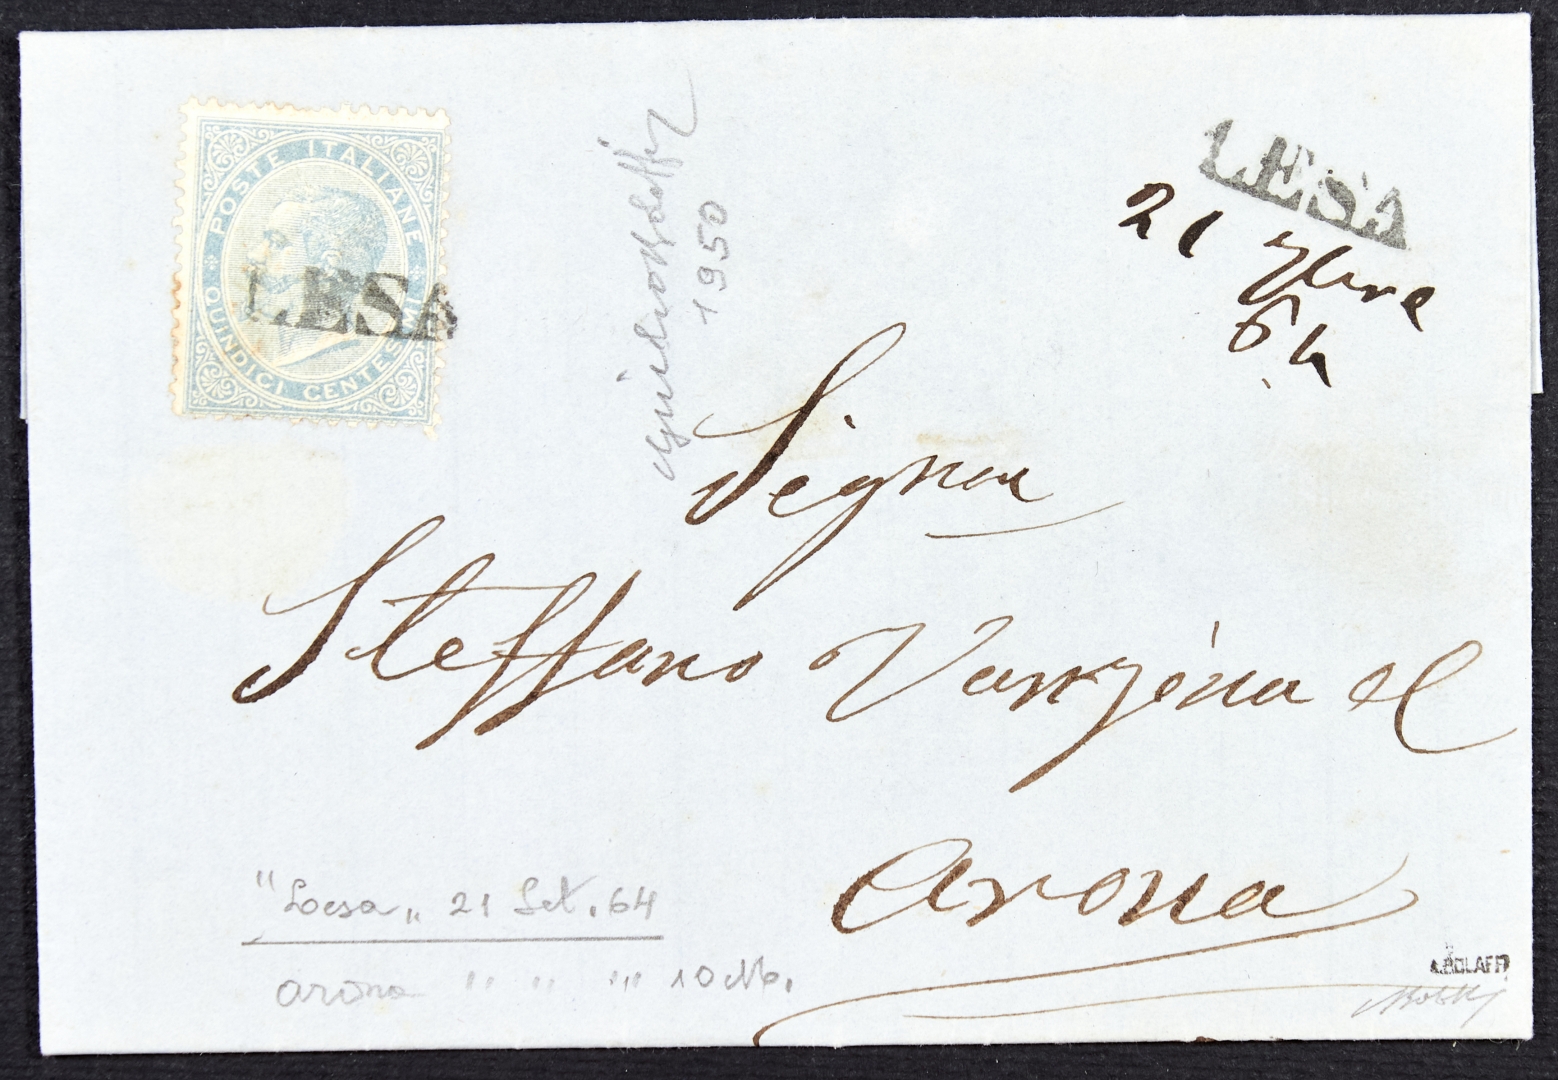 POSTE ITALIANE
QUINDICI CENTESIMI
LESA
LESA
21 7bre
64
1950
Signor
Steffano Vanzina el
Arona
"Lesa„ 21 Set. 64
arona " " "
A.BOLAFFI